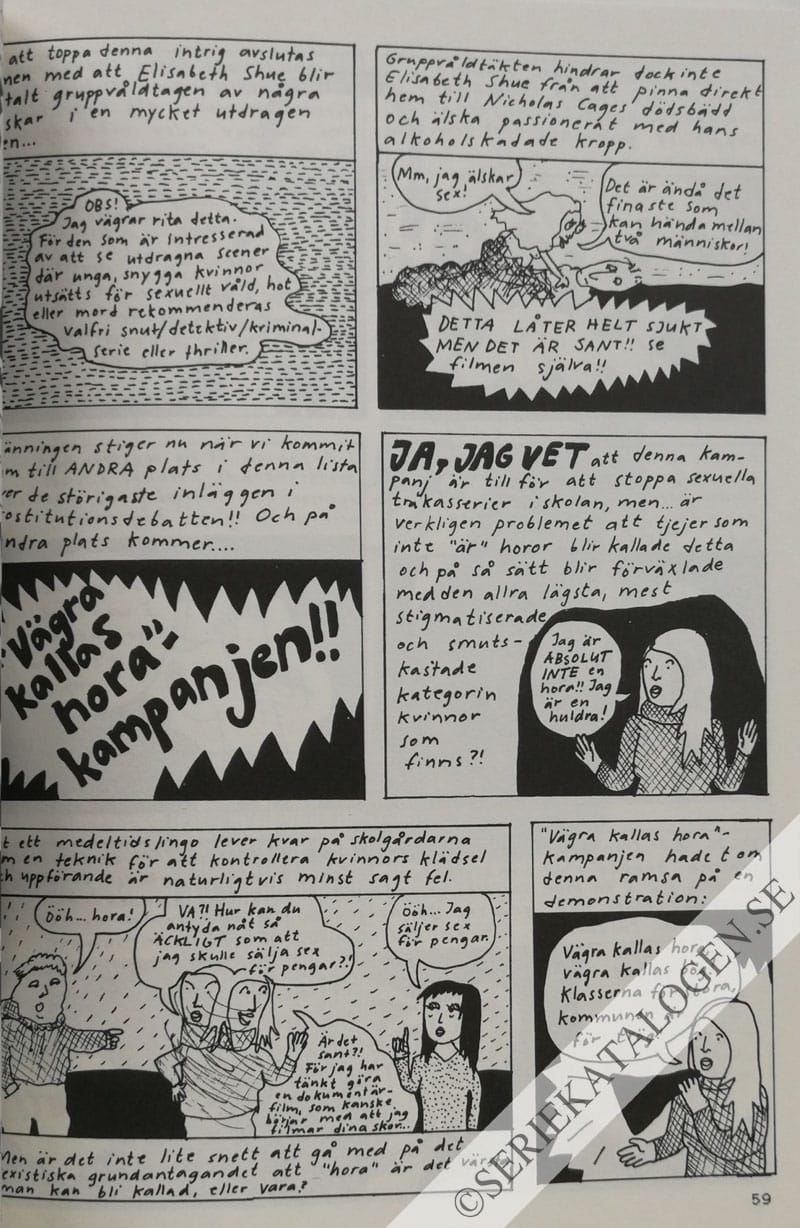 att toppa denna intrig avslutas
nen med att Elisabeth Shue blir
talt gruppvåldtagen av några
skar i en mycket utdragen
en...
OBS!
Jag vägrar rita detta.
För den som är intresserad
av att se utdragna scener
där unga, snygga kvinnor
utsätts för sexuellt våld, hot
eller mord rekommenderas
valfri snut/detektiv/kriminal-
serie eller thriller.
Gruppvåldtäkten hindrar dock inte
Elisabeth Shue från att pinna direkt
hem till Nicholas Cages dödsbädd
och älska passionerat med hans
alkoholskadade kropp.
Mm, jag älskar
sex!
Det är ändå det
finaste som
kan hända mellan
två människor!
DETTA LÅTER HELT SJUKT
MEN DET ÄR SANT!! se
filmen själva!!
änningen stiger nu när vi kommit
m till ANDRA plats i denna lista
er de störigaste inläggen i
ostitutionsdebatten!! Och på
ndra plats kommer....
"Vägra
kallas
hora"-
kampanjen!!
JA, JAG VET att denna kam-
panj är till för att stoppa sexuella
trakasserier i skolan, men... är
verkligen problemet att tjejer som
inte "är" horor blir kallade detta
och på så sätt blir förväxlade
med den allra lägsta, mest
stigmatiserade
och smuts-
kastade
kategorin
kvinnor
som
finns?!
Jag är
ABSOLUT
INTE en
hora!! Jag
är en
huldra!
t ett medeltidslingo lever kvar på skolgårdarna
m en teknik för att kontrollera kvinnors klädsel
h uppförande är naturligtvis minst sagt fel.
Ööh... hora!
VA?! Hur kan du
antyda nåt så
ÄCKLIGT som att
jag skulle sälja sex
för pengar?!
Ööh... Jag
säljer sex
för pengar.
Är det
sant?!
För jag har
tänkt göra
en dokumentär-
film, som kanske
börjar med att jag
filmar dina skor...
Men är det inte lite snett att gå med på det
existiska grundantagandet att "hora" är det värsta
man kan bli kallad, eller vara?
"Vägra kallas hora"-
kampanjen hade t om
denna ramsa på en
demonstration:
Vägra kallas hora,
vägra kallas bög.
Klasserna för stora,
kommunen är
för
©SERIEKATALOGEN.SE
59